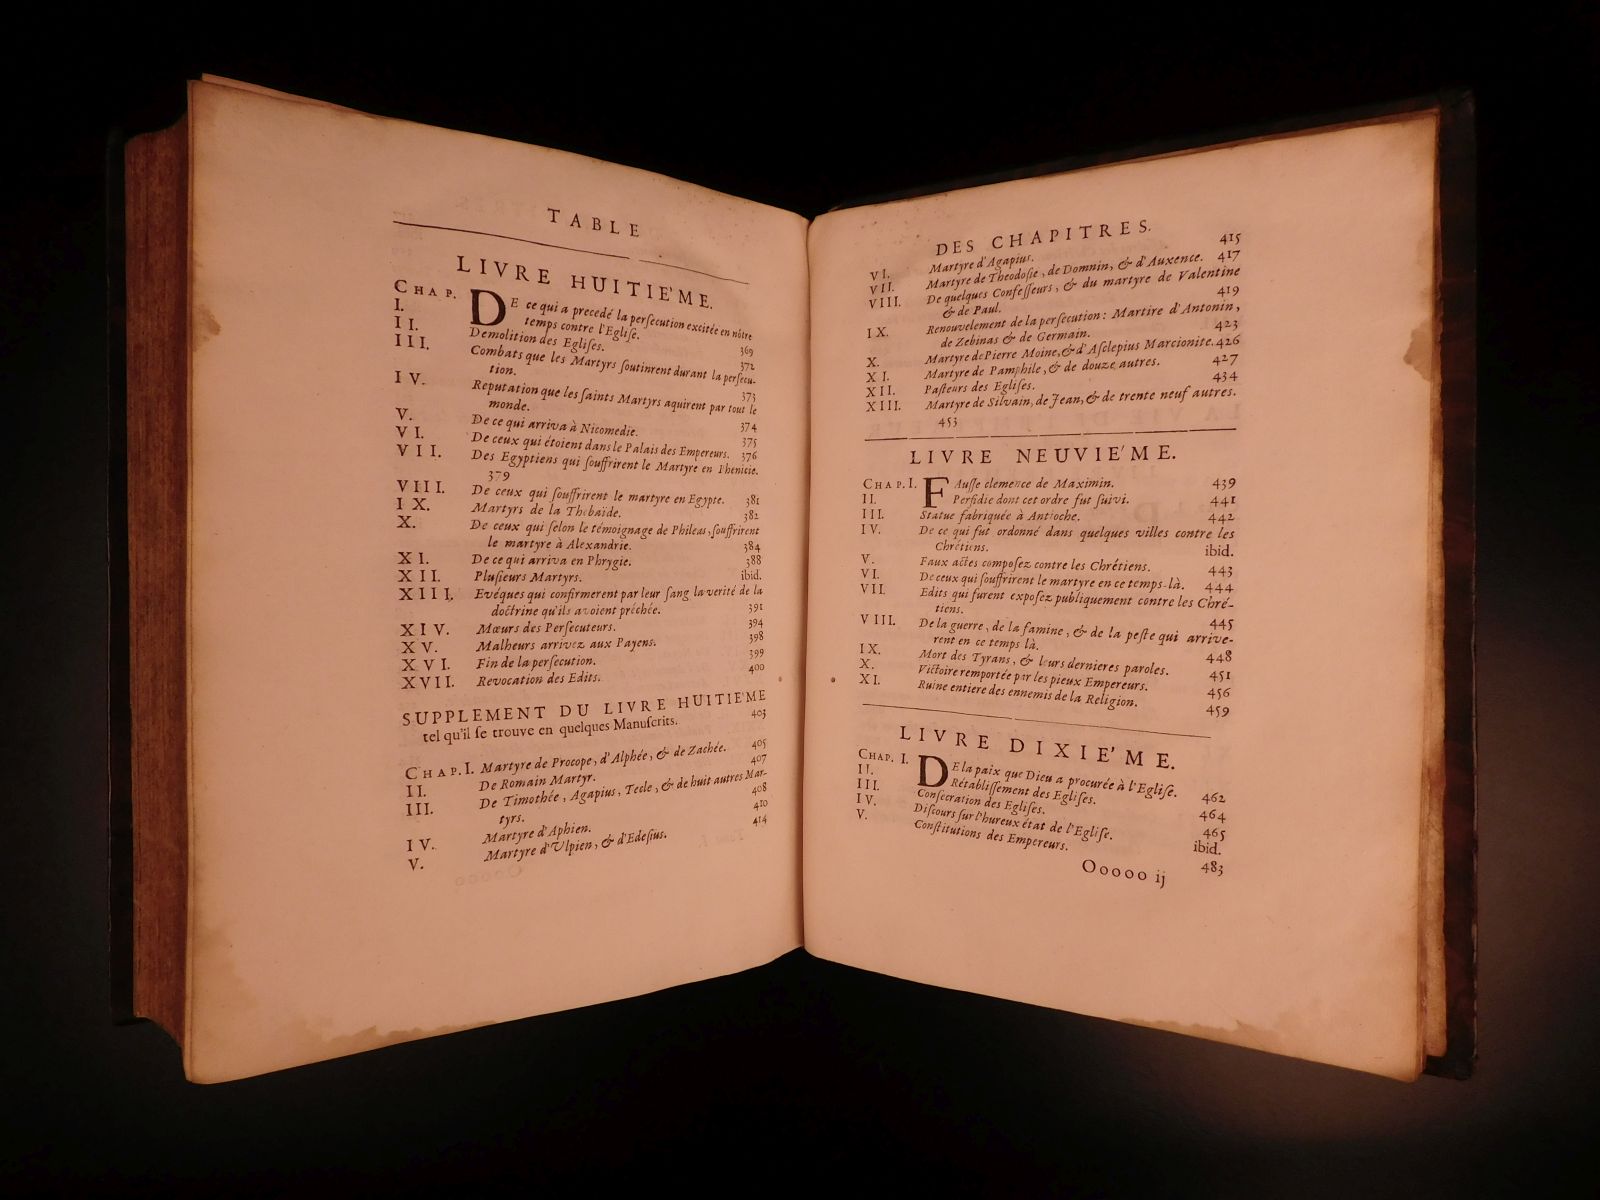 TABLE
LIVRE HUITIE'ME.
CHAP. I. DE ce qui a precedé la persecution excitée en nôtre
temps contre l'Eglise. 369
II. Demolition des Eglises. 372
III. Combats que les Martyrs soutinrent durant la persecu-
tion. 373
IV. Reputation que les saints Martyrs aquirent par tout le
monde. 374
V. De ce qui arriva à Nicomedie. 375
VI. De ceux qui étoient dans le Palais des Empereurs. 376
VII. Des Egyptiens qui souffrirent le Martyre en Phenicie.
379
VIII. De ceux qui souffrirent le martyre en Egypte. 381
IX. Martyrs de la Thebaïde. 382
X. De ceux qui selon le témoignage de Phileas, souffrirent
le martyre à Alexandrie. 384
XI. De ce qui arriva en Phrygie. 388
XII. Plusieurs Martyrs. ibid.
XIII. Evéques qui confirmerent par leur sang la verité de la
doctrine qu'ils avoient préchée. 391
XIV. Mœurs des Persecuteurs. 394
XV. Malheurs arrivez aux Payens. 398
XVI. Fin de la persecution. 399
XVII. Revocation des Edits. 400
SUPPLEMENT DU LIVRE HUITIE'ME
tel qu'il se trouve en quelques Manuscrits. 403
CHAP. I. Martyre de Procope, d'Alphée, & de Zachée. 405
II. De Romain Martyr. 407
III. De Timothée, Agapius, Tecle, & de huit autres Mar-
tyrs. 408
IV. Martyre d'Aphien. 410
V. Martyre d'Ulpien, & d'Edesius. 414
DES CHAPITRES.
VI. Martyre d'Agapius. 415
VII. Martyre de Theodosie, de Domnin, & d'Auxence. 417
VIII. De quelques Confesseurs, & du martyre de Valentine
& de Paul. 419
IX. Renouvelement de la persecution: Martire d'Antonin,
de Zebinas & de Germain. 423
X. Martyre de Pierre Moine, & d'Asclepius Marcionite. 426
XI. Martyre de Pamphile, & de douze autres. 427
XII. Pasteurs des Eglises. 434
XIII. Martyre de Silvain, de Jean, & de trente neuf autres.
453
LIVRE NEUVIE'ME.
CHAP. I. FAusse clemence de Maximin. 439
II. Perfidie dont cet ordre fut suivi. 441
III. Statue fabriquée à Antioche. 442
IV. De ce qui fut ordonné dans quelques villes contre les
Chrétiens. ibid.
V. Faux actes composez contre les Chrétiens. 443
VI. De ceux qui souffrirent le martyre en ce temps-là. 444
VII. Edits qui furent exposez publiquement contre les Chré-
tiens. 445
VIII. De la guerre, de la famine, & de la peste qui arrive-
rent en ce temps là. 448
IX. Mort des Tyrans, & leurs dernieres paroles. 451
X. Victoire remportée par les pieux Empereurs. 456
XI. Ruine entiere des ennemis de la Religion. 459
LIVRE DIXIE'ME.
CHAP. I. DE la paix que Dieu a procurée à l'Eglise. 462
II. Rétablissement des Eglises. 464
III. Consecration des Eglises. 465
IV. Discours sur l'hureux état de l'Eglise. ibid.
V. Constitutions des Empereurs. 483
Ooooo ij